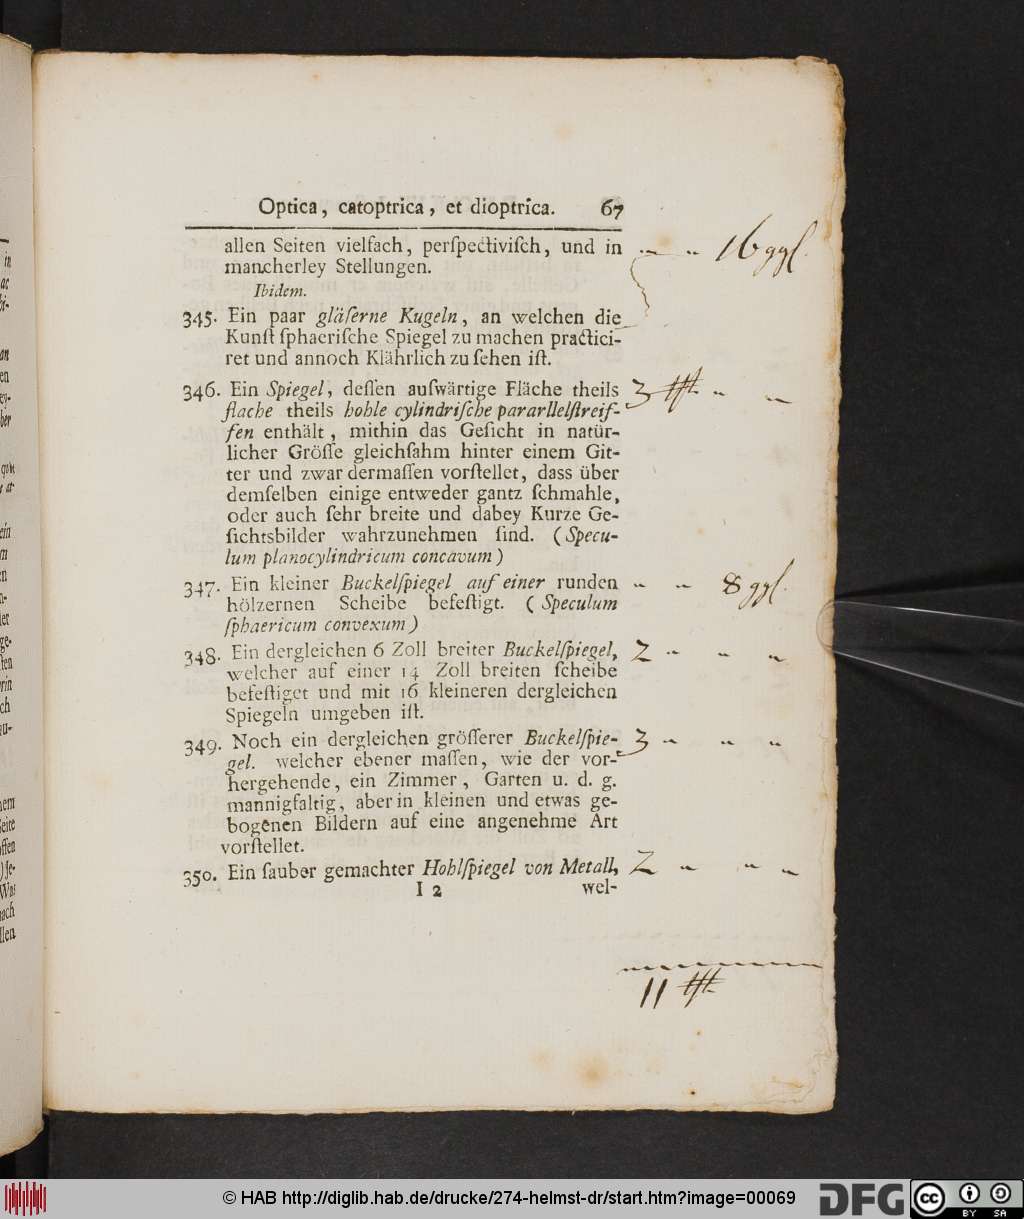 Optica, catoptrica, et dioptrica. 67
allen Seiten vielfach, perſpectiviſch, und in — " 16 ggl.
mancherley Stellungen.
Ibidem.
345. Ein paar gläſerne Kugeln, an welchen die
Kunſt ſphaeriſche Spiegel zu machen practici-
ret und annoch Klährlich zu ſehen iſt.
346. Ein Spiegel, deſſen auſwärtige Fläche theils 3 " "
flache theils hohle cylindriſche pararllelſtreif-
fen enthält, mithin das Geſicht in natür-
licher Gröſſe gleichſahm hinter einem Git-
ter und zwar dermaſſen vorſtellet, dass über
demſelben einige entweder gantz ſchmahle,
oder auch ſehr breite und dabey Kurze Ge-
ſichtsbilder wahrzunehmen ſind. (Specu-
lum planocylindricum concavum)
347. Ein kleiner Buckelſpiegel auf einer runden " " 8 ggl.
hölzernen Scheibe befeſtigt. (Speculum
ſphaericum convexum)
348. Ein dergleichen 6 Zoll breiter Buckelſpiegel, 2 " " "
welcher auf einer 14 Zoll breiten ſcheibe
befeſtiget und mit 16 kleineren dergleichen
Spiegeln umgeben iſt.
349. Noch ein dergleichen gröſſerer Buckelſpie- 3 " " "
gel. welcher ebener maſſen, wie der vor-
hergehende, ein Zimmer, Garten u. d. g.
mannigfaltig, aber in kleinen und etwas ge-
bogenen Bildern auf eine angenehme Art
vorſtellet.
350. Ein ſauber gemachter Hohlſpiegel von Metall, 2 " " "
I 2 wel-
11
© HAB http://diglib.hab.de/drucke/274-helmst-dr/start.htm?image=00069
DFG
cc BY SA